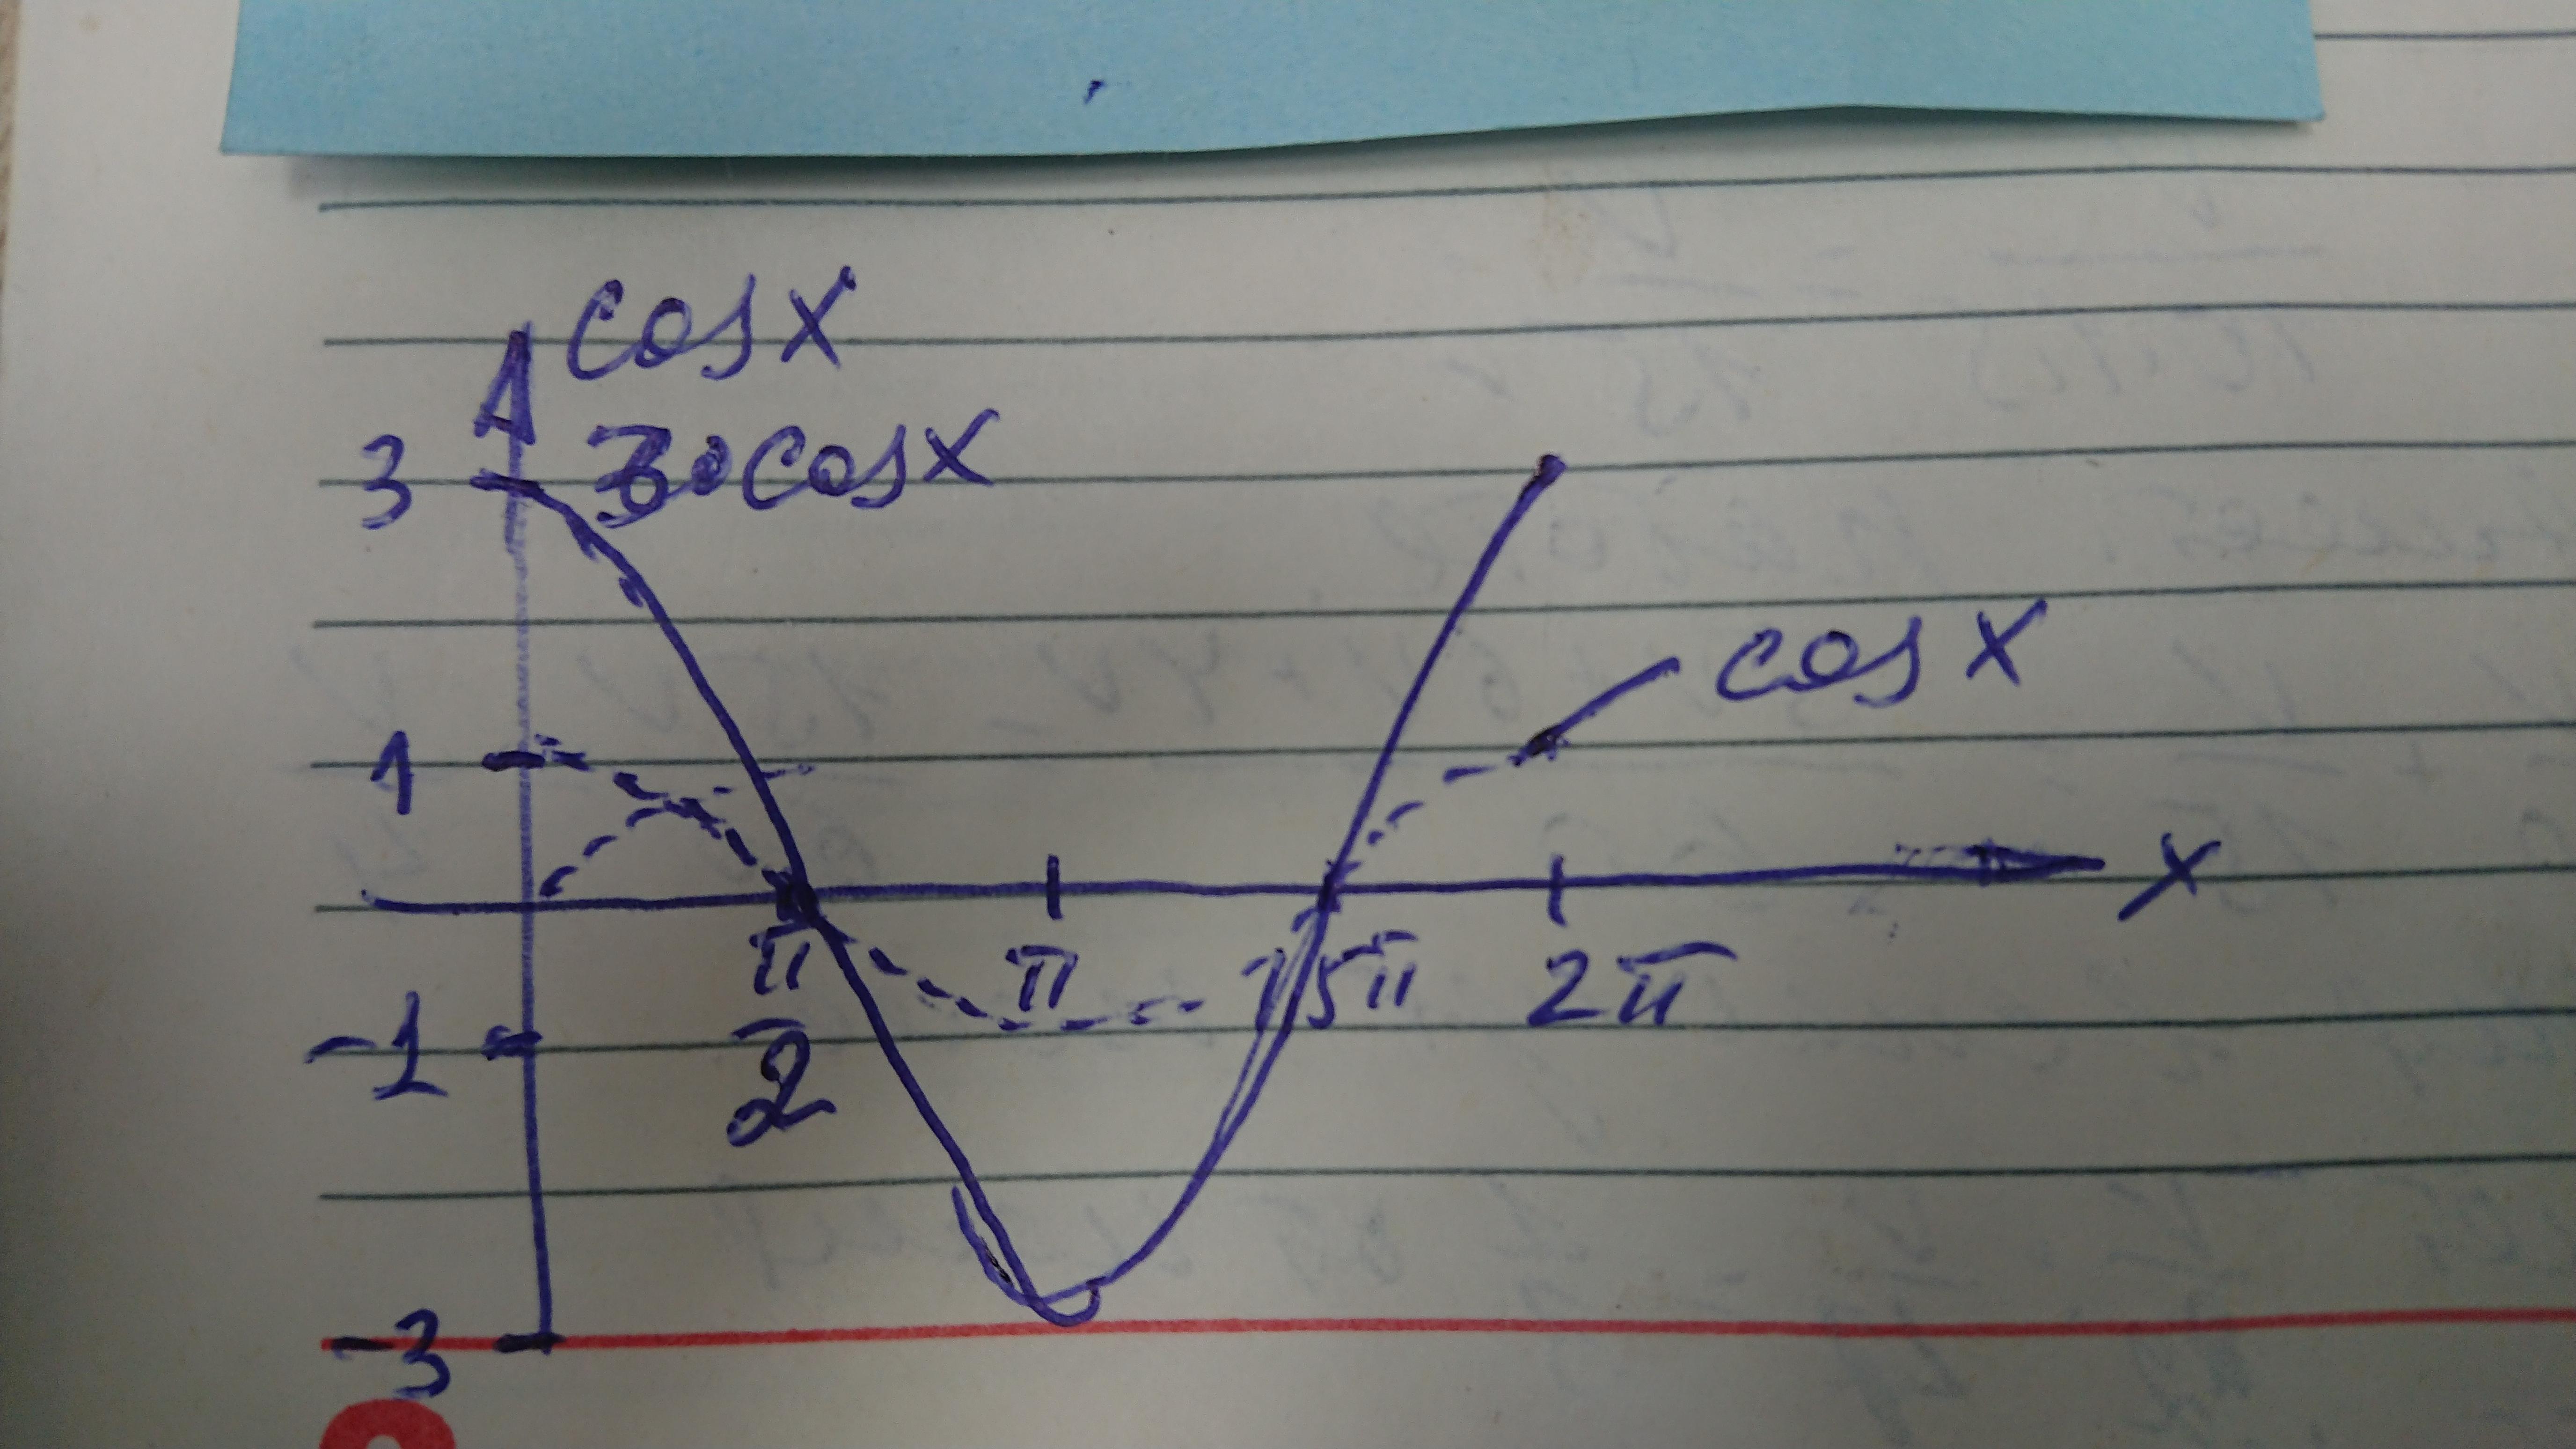 cosx
3 3•cosx
cosx
1
x
π/2 π 1,5π 2π
-1
-3